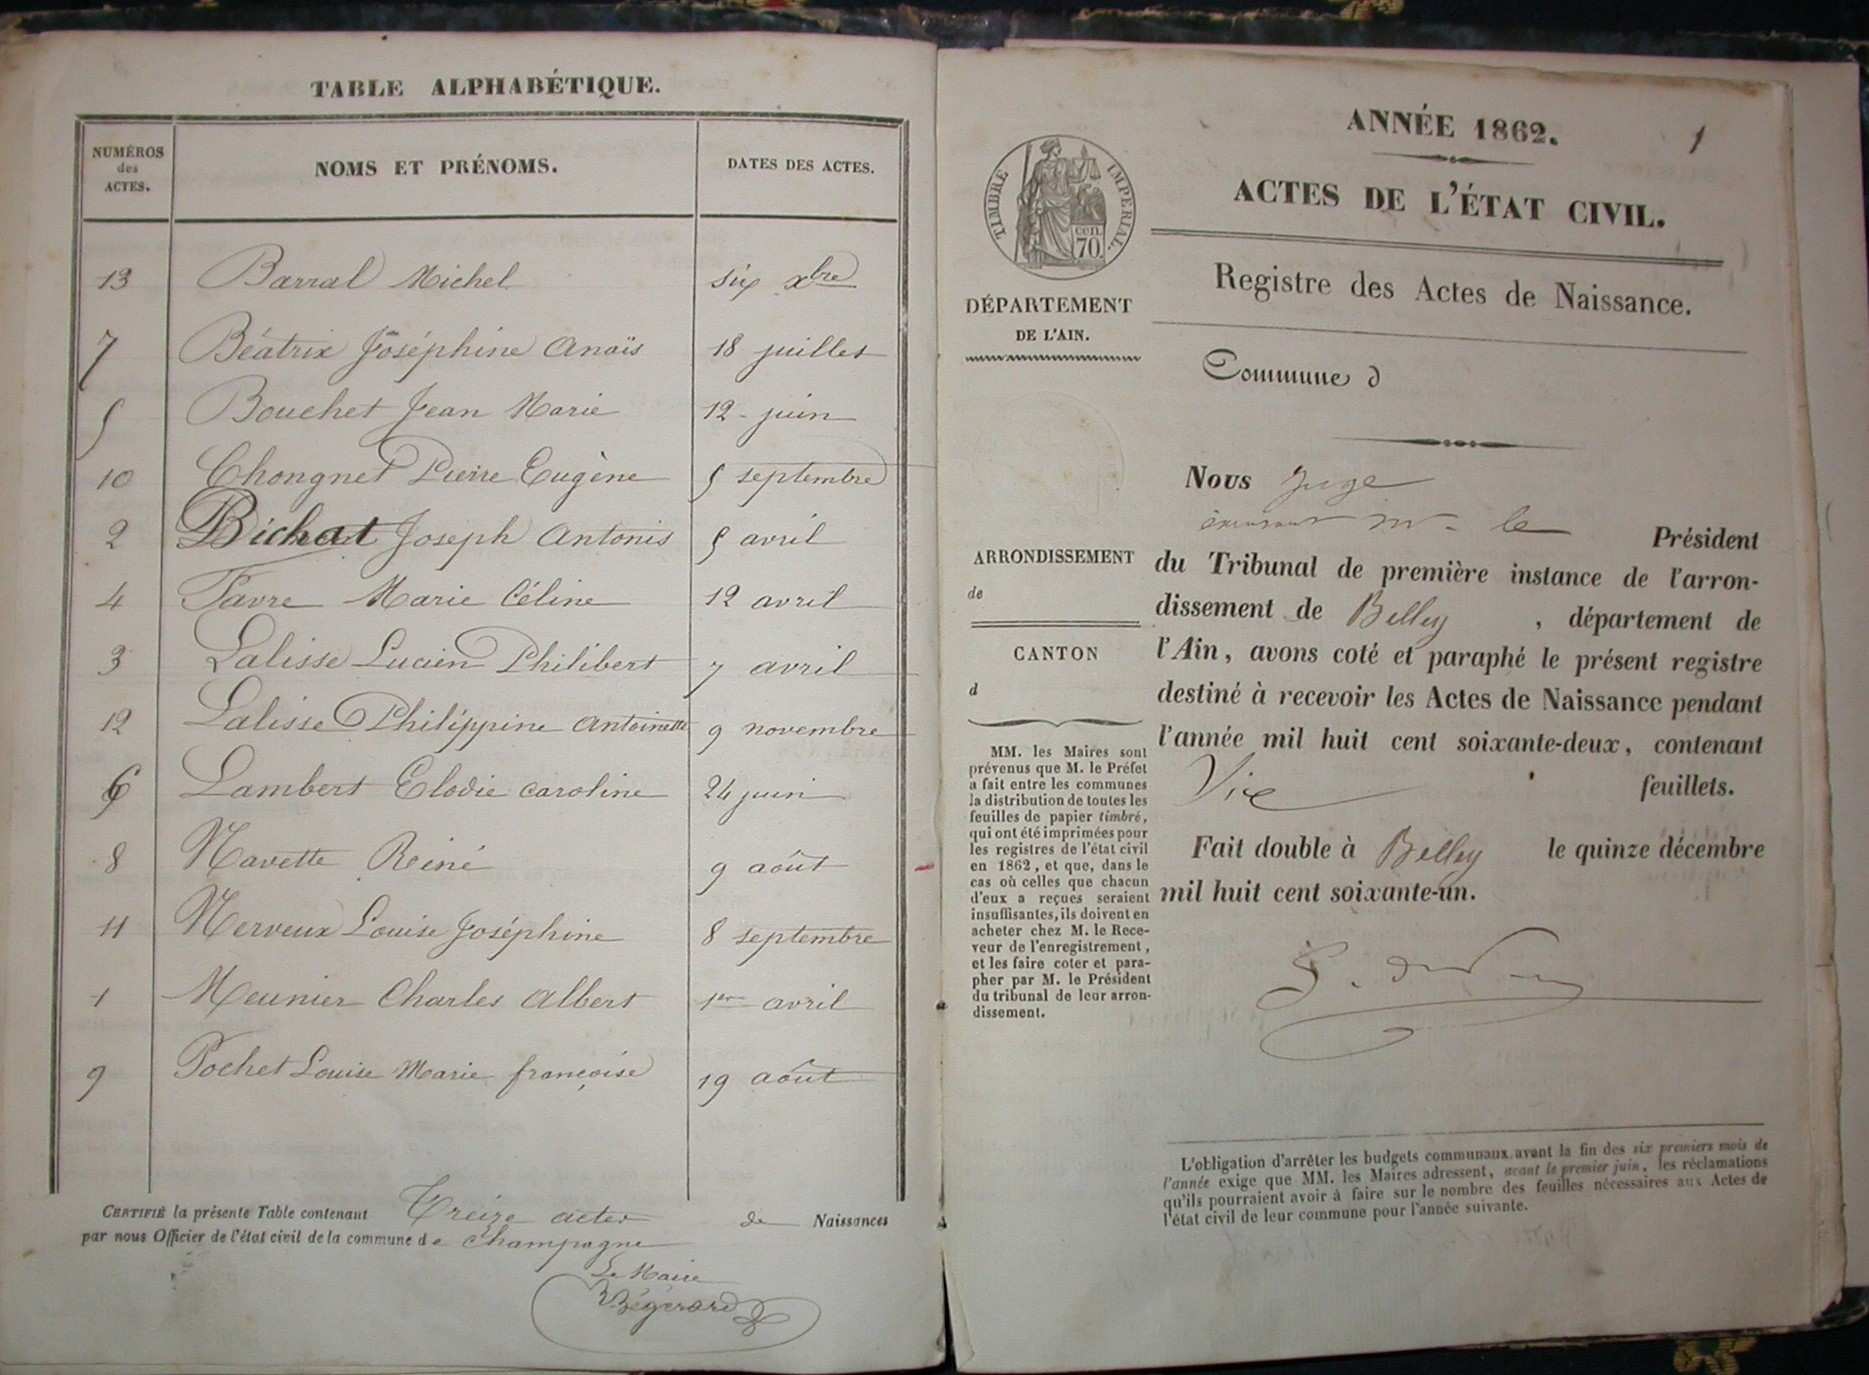 TABLE ALPHABÉTIQUE.
NUMÉROS des ACTES.
NOMS ET PRÉNOMS.
DATES DES ACTES.
13 Barral Michel six xbre
7 Béatrix Joséphine Anaïs 18 juillet
5 Bouchet Jean Marie 12 juin
10 Chongnet Pierre Eugène 5 septembre
2 Bichat Joseph Antonis 5 avril
4 Favre Marie Céline 12 avril
3 Lalisse Lucien Philibert 7 avril
12 Lalisse Philippine Antoinette 9 novembre
6 Lambert Elodie Caroline 24 juin
8 Navette Réiné 9 août
11 Nerveux Louise Joséphine 8 septembre
1 Meunier Charles Albert 1er avril
9 Pochet Louise Marie françoise 19 août
CERTIFIÉ la présente Table contenant Treize actes de Naissances
par nous Officier de l'état civil de la commune de Champagne
Le Maire
ANNÉE 1862.
1
ACTES DE L'ÉTAT CIVIL.
TIMBRE IMPERIAL.
cen.
70.
Registre des Actes de Naissance.
DÉPARTEMENT
DE L'AIN.
Commune d
ARRONDISSEMENT
de
CANTON
d
MM. les Maires sont
prévenus que M. le Préfet
a fait entre les communes
la distribution de toutes les
feuilles de papier timbré,
qui ont été imprimées pour
les registres de l'état civil
en 1862, et que, dans le
cas où celles que chacun
d'eux a reçues seraient
insuffisantes, ils doivent en
acheter chez M. le Rece-
veur de l'enregistrement,
et les faire coter et para-
pher par M. le Président
du tribunal de leur arron-
dissement.
Nous Juge
Mr le Président
du Tribunal de première instance de l'arron-
dissement de Belley, département de
l'Ain, avons coté et paraphé le présent registre
destiné à recevoir les Actes de Naissance pendant
l'année mil huit cent soixante-deux, contenant
feuillets.
Fait double à Belley le quinze décembre
mil huit cent soixante-un.
L'obligation d'arrêter les budgets communaux avant la fin des six premiers mois de
l'année exige que MM. les Maires adressent, avant le premier juin, les réclamations
qu'ils pourraient avoir à faire sur le nombre des feuilles nécessaires aux Actes de
l'état civil de leur commune pour l'année suivante.